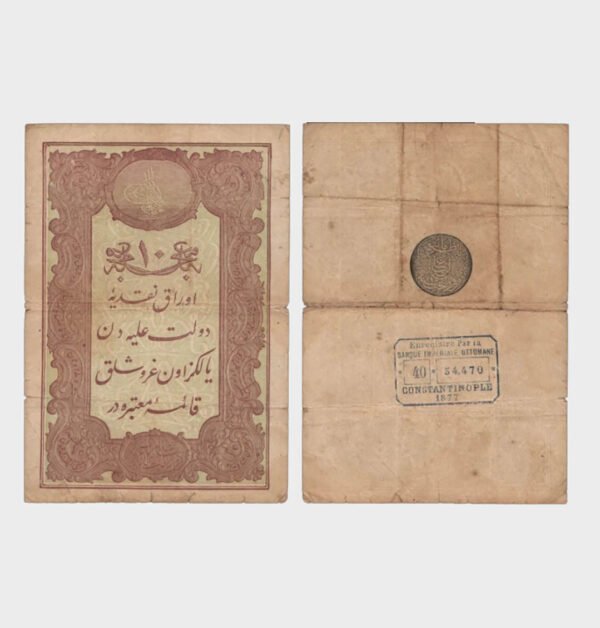 ١٠
اوراق نقدیهٔ
دولت علیه دن
یالکز اون غروشلق
قائمهٔ معتبره در
Enregistré Par la
BANQUE IMPÉRIALE OTTOMANE
40 34,470
CONSTANTINOPLE
1877